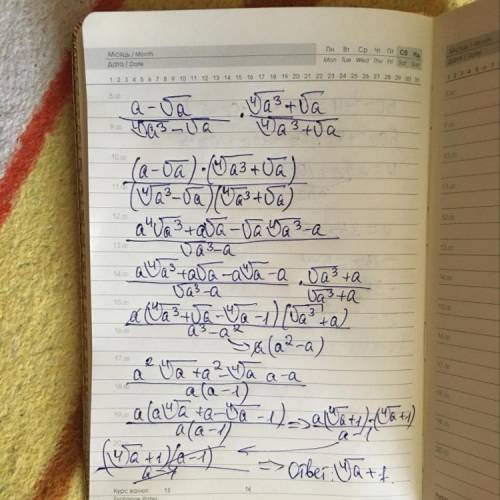 Місяць / Month Пн Вт Ср Чт Пт Сб Нд
Дата / Date Mon Tue Wed Thu Fri Sat Sun
1 2 3 4 5 6 7 8 9 10 11 12 13 14 15 16 17 18 19 20 21 22 23 24 25 26 27 28 29 30 31
(a-√a)/(⁴√a³-√a) · (⁴√a³+√a)/(⁴√a³+√a)
((a-√a)·(⁴√a³+√a))/((⁴√a³-√a)(⁴√a³+√a))
(a⁴√a³+a√a-√a⁴√a³-a)/(√a³-a)
(a⁴√a³+a√a-a⁴√a-a)/(√a³-a) · (√a³+a)/(√a³+a)
(a(⁴√a³+√a-⁴√a-1)(√a³+a))/(a³-a²)
→ a(a²-a)
(a²⁴√a+a²-⁴√a a-a)/(a(a-1))
(a(a⁴√a+a-⁴√a-1))/(a(a-1)) ⇒ (a(⁴√a+1)-(⁴√a+1))/(a-1)
((⁴√a+1)(a-1))/(a-1) ⇒ Ответ: ⁴√a+1.
Курс валют 15 16